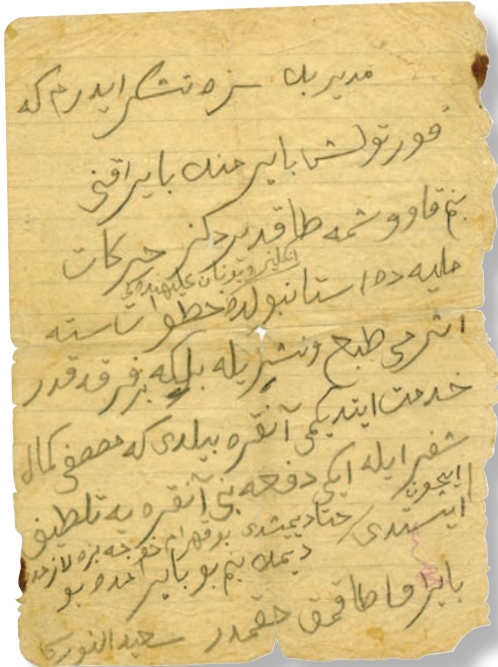 مدير بك سزه تشكر ايدرم كه
قورتولش بايرامنك بايراقنى
بنم قاووشمه طاقديرديكز حركات
مليه ده استانبولده خطوات سته
انكليز و يونان عليهنده كى
اثرمى طبع و نشر يله بلكه بر فرقه قدر
خدمت ايتديكمى آنقره بيلدى كه مصطفى كمال
شفره ايله ايكى دفعه بنى آنقره يه تلطيف
ايچون
ايستدى حتا ديمشدى بو قهرمان خوجه بزه لازمدر
ديمك بنم بو بايرامده بو
بايراقى طاقمق حقمدر سعيد النورسى